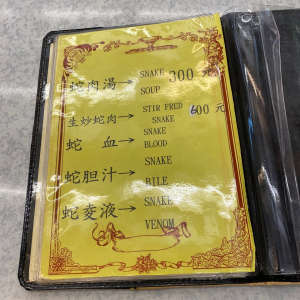 蛇肉湯→ SNAKE SOUP 300元
生炒蛇肉→ STIR FRED SNAKE 600元
蛇 血→ SNAKE BLOOD
蛇胆汁→ SNAKE BILE
蛇䓎液→ SNAKE VENOM